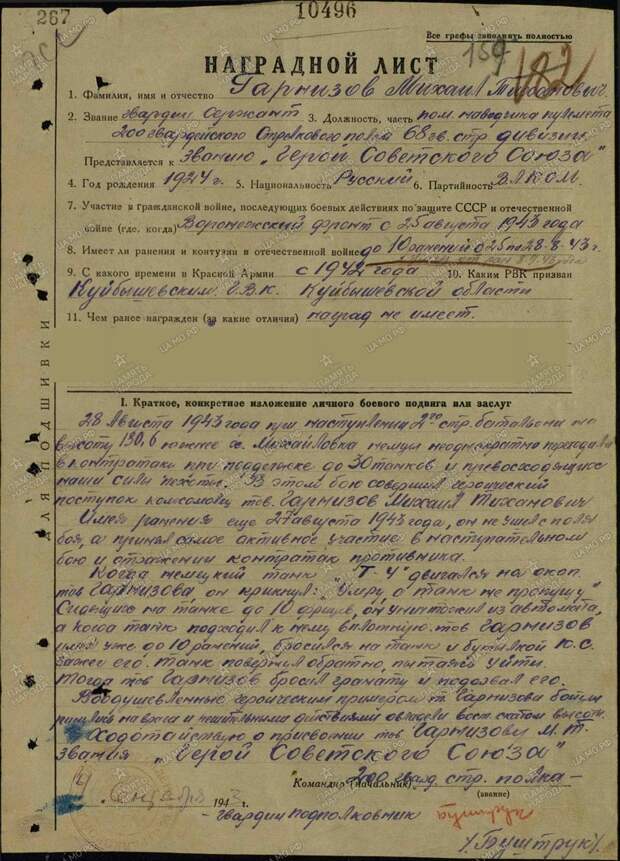 267
10496
Все графы заполнять полностью
159
182
НАГРАДНОЙ ЛИСТ
1. Фамилия, имя и отчество Гарнизов Михаил Тиханович
2. Звание гвардии Сержант 3. Должность, часть пом. наводчика пулемета
200 гвардейского Стрелкового полка 68 гв. стр дивизии
Представляется к званию „Герой Советского Союза"
4. Год рождения 1924 г. 5. Национальность Русский 6. Партийность ВЛКСМ.
7. Участие в гражданской войне, последующих боевых действиях по защите СССР и отечественной
войне (где, когда) Воронежский фронт с 25 августа 1943 года
8. Имеет ли ранения и контузии в отечественной войне до 10 ранений с 25 по 28.8.43 г.
9. С какого времени в Красной Армии с 1942 года 10. Каким РВК призван
Куйбышевским Г.В.К. Куйбышевской области
11. Чем ранее награжден (за какие отличия) наград не имеет.
ДЛЯ ПОДШИВКИ
I. Краткое, конкретное изложение личного боевого подвига или заслуг
28 Августа 1943 года при наступлении 2го стр. батальона на
высоту 130,6 южнее с. Михайловка немцы неоднократно переходили
в контратаки при поддержке до 30 танков и превосходящие
наши силы пехоты. В этом бою совершил героический
поступок комсомолец тов. Гарнизов Михаил Тиханович
Имея ранения еще 27 августа 1943 года, он не ушел с поля
боя, а принял самое активное участие в наступательном
бою и отражении контратак противника.
Когда немецкий танк „Т-4" двигался на окоп
тов Гарнизова он крикнул: „Умру а танк не пропущу"
Сидящих на танке до 10 фрицев, он уничтожил из автомата,
а когда танк подходил к нему вплотную. тов Гарнизов,
имея уже до 10 ранений, бросился на танк и бутылкой К.С.
зажег его. Танк повернул обратно, пытаясь уйти.
Тогда тов Гарнизов бросил гранату и подорвал его.
Воодушевленные героическим примером т. Гарнизова бойцы
ринулись на врага и решительными действиями овладели вост. скатом высоты.
Ходотайствую о присвоении тов Гарнизову М. Т.
звания „Герой Советского Союза"
Командир (начальник) 200 гвард. стр. полка -
(звание)
14 сентября 1943
- гвардии подполковник
/Буштрук/.
ПАМЯТЬ НАРОДА
ЦА.МО.РФ